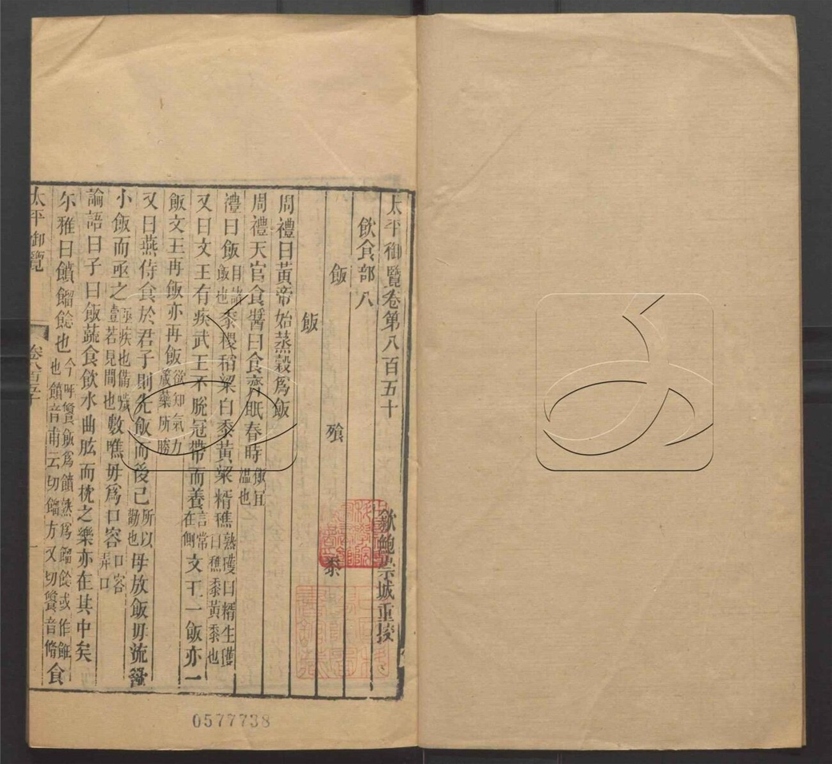 太平御覽卷第八百五十
歙鮑崇城重挍
飲食部八
飯 飱 黍
飯
周禮曰黃帝始蒸穀爲飯
周禮天官食醫曰食齊眡春時飯宜溫也
禮曰飯目諸飯也黍稷稻粱白黍黃粱稰穛熟穫曰稰生穫曰穛黍黃黍也
又曰文王有疾武王不脫冠帶而養言常在側文王一飯亦一
飯文王再飯亦再飯欲知氣力箴藥所勝
又曰燕侍食於君子則先飯而後已所以勸也毋放飯毋流歠
小飯而亟之亟疾也備噦噎若見問也數噍毋爲口容口容弄口
論語曰子曰飯蔬食飲水曲肱而枕之樂亦在其中矣
尓雅曰饙餾飪也今呼䬸飯爲饙饙熟爲餾飪或作餁也饙音甫云切餾方又切䬸音脩食
太平御覽
卷八百五十
一
0577738